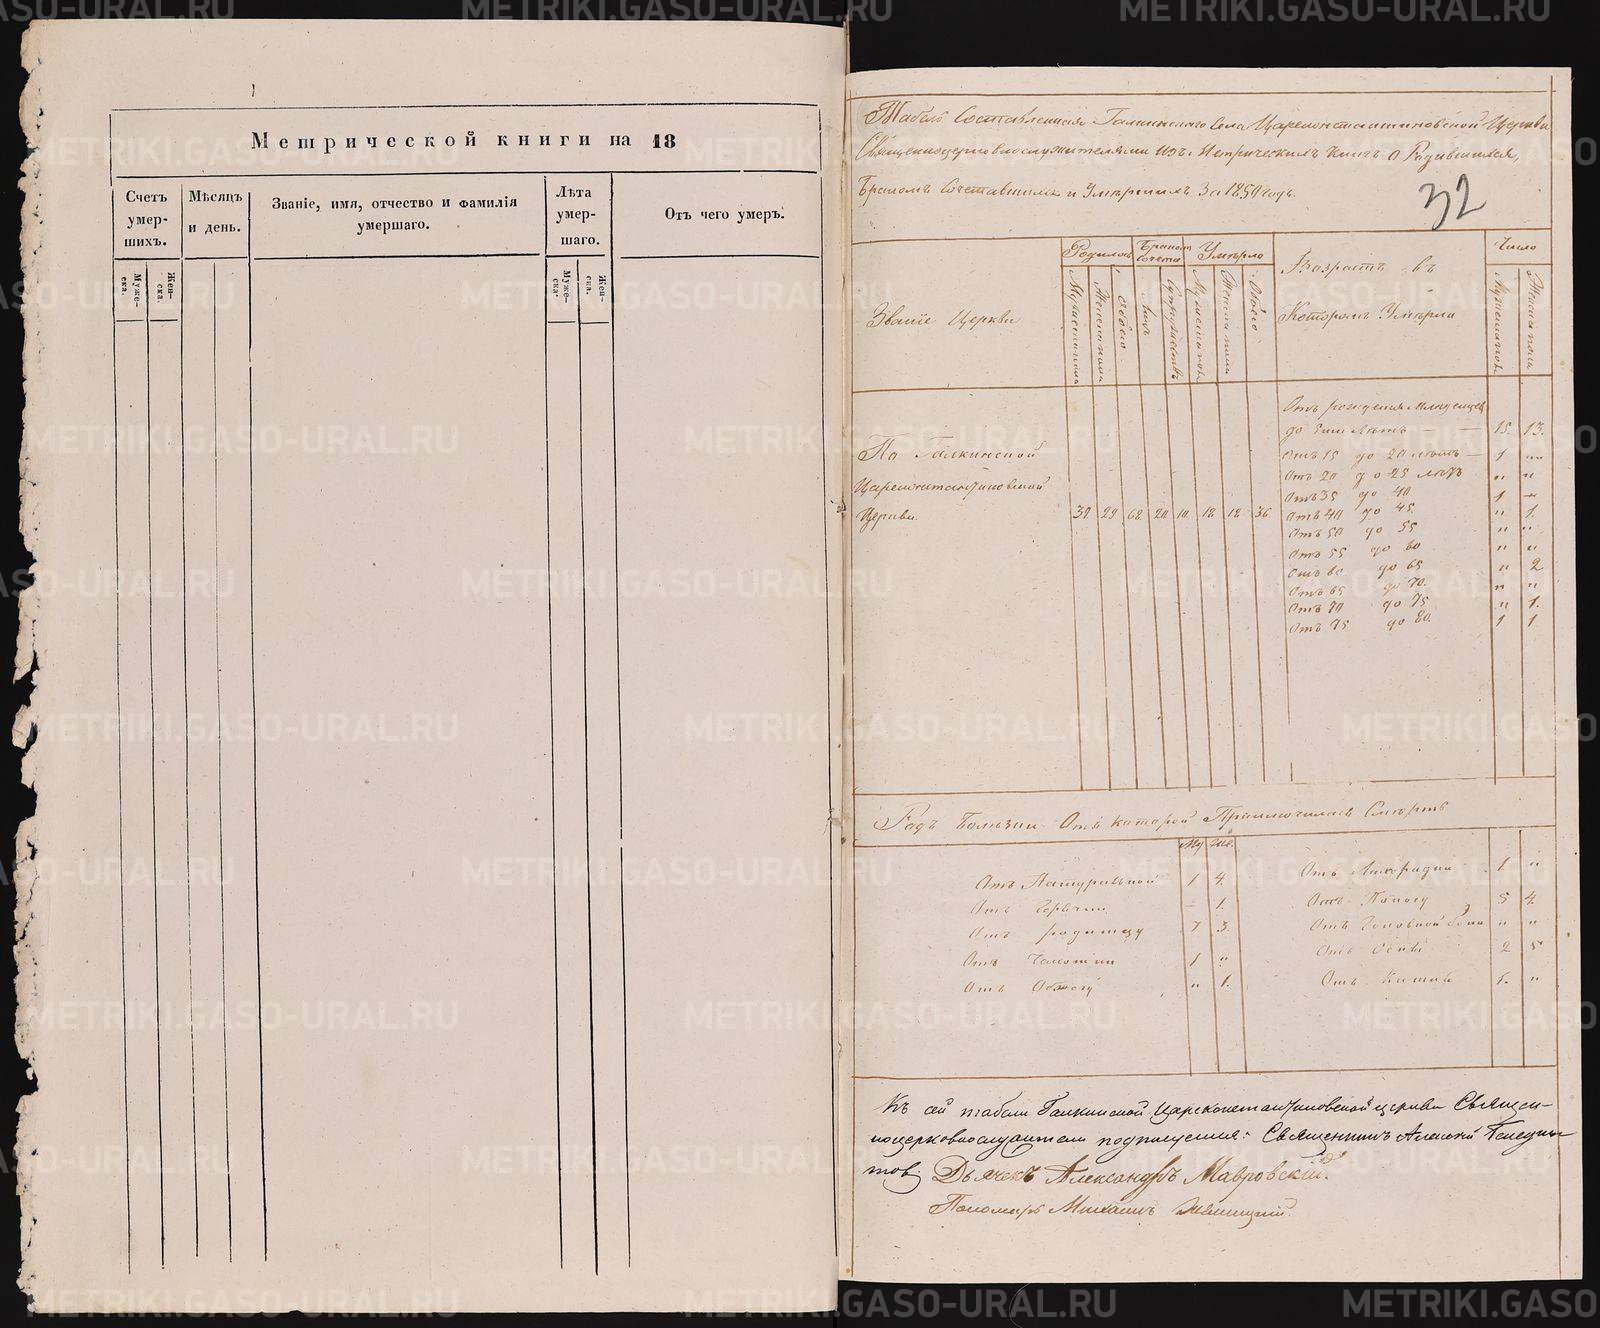 Метрической книги на 18
Счетъ умер-шихъ.
Муже-ска.
Жен-ска.
Мѣсяцъ и день.
Званіе, имя, отчество и фамилія
умершаго.
Лѣта умер-шаго.
Муже-ска.
Жен-ска.
Отъ чего умеръ.
Табель Составленная Галкинскаго села Цареконстантиновской Церкви
Священноцерковнослужителями Изъ Метрическихъ Книгъ о Родившихся,
Бракомъ Сочетавшихся и Умершихъ За 1850 годъ.
32
Званіе Церкви
Родилось
Мужеска пола
Женска пола
Обоего
Бракомъ сочета
Лицъ
Супружествъ
Умерло
Мужеска пол.
Женска пола
Обоего
Возрастъ въ
Которомъ Умерли
Число
Мужеска пол.
Женска пола
По Галкинской
Цареконстантиновской
Церкви.
39. 29 68. 20 10. 18 18 36.
Отъ рожденія Младенцевъ
до 5ти Лѣтъ — — 15. 13.
Отъ 15 до 20 лѣтъ — 1 "
Отъ 20 до 25 лѣтъ " "
Отъ 35 до 40 1 —
Отъ 40 до 45. " 1.
Отъ 50 до 55 " "
Отъ 55 до 60 " "
Отъ 60 до 65 " 2
Отъ 65 до 70. " "
Отъ 70 до 75 " 1.
Отъ 75 до 80. 1 1
Родъ Болѣзни Отъ которой Приключилась Смерть
Му Же.
Отъ Натуральной 1 4.
Отъ Горячки — 1.
Отъ родимцу 7 3.
Отъ Чахотки 1 "
Отъ " 1.
Отъ Лихорадки 1. "
Отъ Поносу 5 4.
Отъ Головной боли " "
Отъ Оспы 2 5
Отъ Кашля 1. "
Къ сей табели Галкинской Цареконстантиновской церкви Священ-
ноцерковнослужители подписуемся: Священникъ Алексѣй
Дьячекъ Александръ Мавровскій.
Пономарь Михаилъ